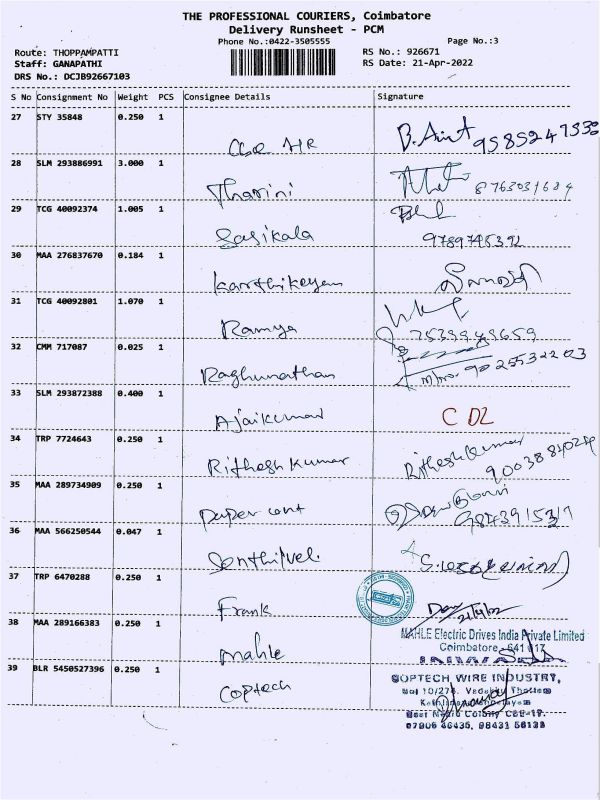 THE PROFESSIONAL COURIERS, Coimbatore
Delivery Runsheet - PCM
Phone No.:0422-3505555
Page No.:3
Route: THOPPAMPATTI
RS No.: 926671
Staff: GANAPATHI
RS Date: 21-Apr-2022
DRS No.: DCJB92667103
S No Consignment No Weight PCS Consignee Details Signature
27 STY 35848 0.250 1
28 SLM 293886991 3.000 1
Tharini
29 TCG 40092374 1.005 1
Sasikala
30 MAA 276837670 0.184 1
Karthikeyan
31 TCG 40092801 1.070 1
Ramya
32 CMM 717087 0.025 1
Raghunathan
33 SLM 293872388 0.400 1
Ajaikumar
34 TRP 7724643 0.250 1
Rithesh Kumar Ritheshkumar
35 MAA 289734909 0.250 1
paper cont
36 MAA 566250544 0.047 1
Senthilvel
37 TRP 6470288 0.250 1
Frank 21/4/22
38 MAA 289166383 0.250 1
MAHLE Electric Drives India Private Limited
Coimbatore - 641 017
Mahle
39 BLR 5450527396 0.250 1
COPTECH WIRE INDUSTRY,
Coptech